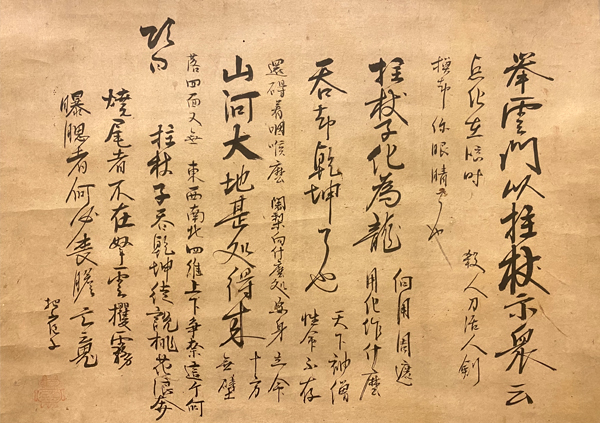 舉雲門以拄杖示衆云
点化在臨時 殺人刀活人劍
換却你眼睛了也
拄杖子化為龍 何用周遮
用化作什麼
吞却乾坤了也 天下衲僧
性命不存
還碍着咽喉麼 闍梨向什麼処安身立命
山河大地甚処得来 十方
無壁
落四面又無 東西南北四維上下爭奈這个何
頌曰
拄杖子吞乾坤徒説桃花浪奔
燒尾者不在拏雲攫霧
曝腮者何必喪膽亡魂